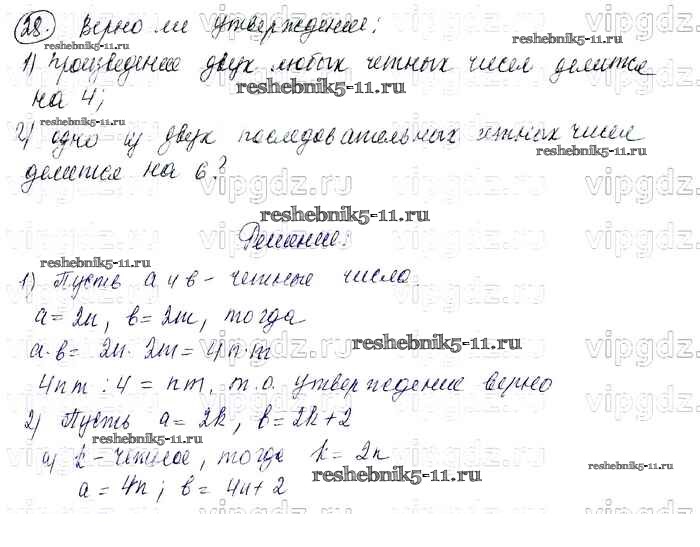 28. Верно ли утверждение:
reshebnik5-11.ru
1) Произведение двух любых четных чисел делится
на 4;
reshebnik5-11.ru
2) одно из двух последовательных четных чисел
reshebnik5-11.ru
делится на 6?
vipgdz.ru vipgdz.ru vipgdz.ru vipgdz
reshebnik5-11.ru
Решение:
reshebnik5-11.ru
1) Пусть a и b - четные числа.
a = 2n, b = 2m, тогда
reshebnik5-11.ru
a·b = 2n · 2m = 4n·m
4nm : 4 = nm, т.о. утверждение верно
2) Пусть a = 2k, b = 2k+2
reshebnik5-11.ru
а) k - четное, тогда k = 2n
reshebnik5-11.ru
a = 4n; b = 4n+2